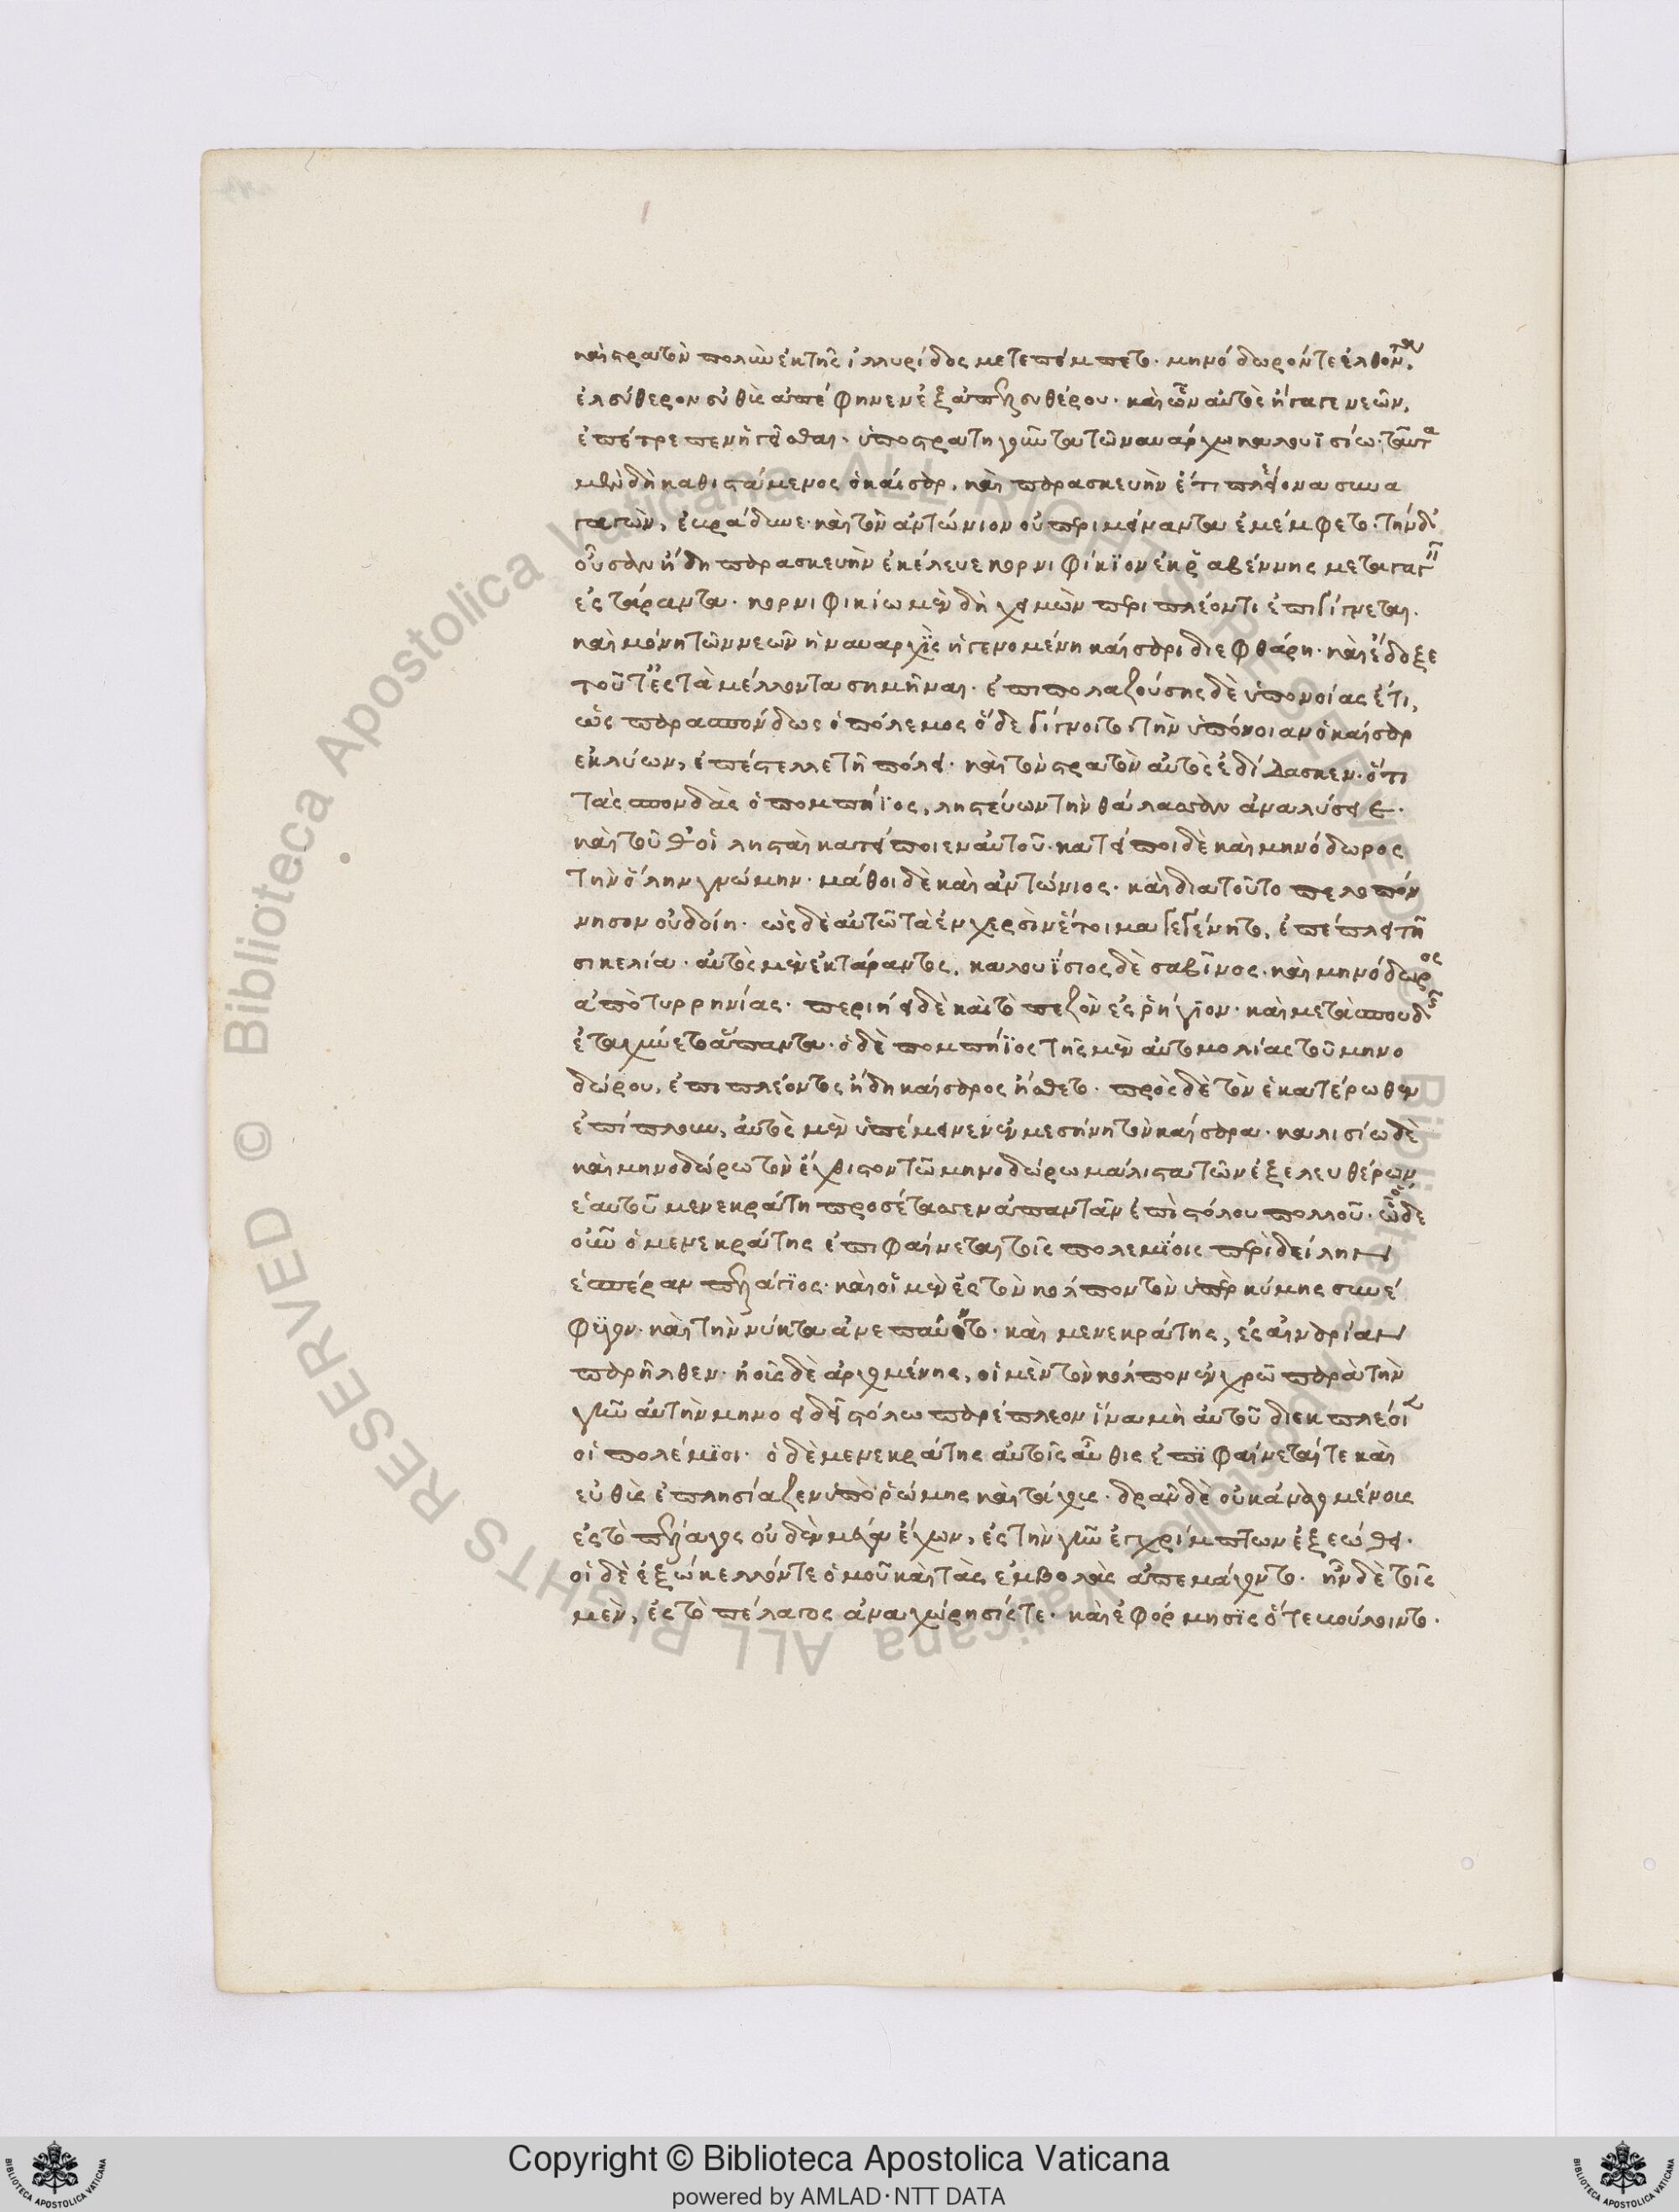 καὶ στρατὸν πολὺν ἐκ τῆς ἰλλυρίδος μετεπέμπετο. μηνόδωρόν τε ἐλθόντα,
ἐλεύθερον εὐθὺς ἀπέφηνεν ἐξ ἀπελευθέρου. καὶ ὧν αὐτὸς ἤγαγε νεῶν,
ἐπέτρεπεν ἡγεῖσθαι. ὑποστρατηγοῦντα τῶ ναυάρχω καλουϊσίω. ταῦτα
μὲν δὴ καθιστάμενος ὁ καίσαρ, καὶ παρασκευὴν ἔτι πλείονα συνα
γαγὼν, ἐβράδυνε. καὶ τὸν ἀντώνιον οὐ περιμείναντα ἐμέμφετο. τὴν δ'
οὖσαν ἤδη παρασκευὴν ἐκέλευε κορνιφίκϊον ἐκ ῥαβέννης μεταγαγεῖν
ἐς τάραντα. κορνιφικίω μὲν δὴ χειμὼν περιπλέοντι ἐπιγίγνεται.
καὶ μόνη τῶν νεῶν ἡ ναυαρχὶς ἡ γενομένη καίσαρι διεφθάρη. καὶ ἔδοξε
τοῦτο ἐς τὰ μέλλοντα σημῆναι. ἐπιπολαζούσης δὲ ὑπονοίας ἔτι,
ὡς παρασπόνδως ὁ πόλεμος ὅδε γίγνοιτο. τὴν ὑπόνοιαν ὁ καίσαρ
ἐκλύων, ἐπέστελλε τῆ πόλει. καὶ τὸν στρατὸν αὐτὸς ἐδίδασκεν. ὅτι
τὰς σπονδὰς ὁ πομπήϊος, ληστεύων τὴν θάλασσαν ἀναλύσειε.
καὶ τοῦθ' οἱ λησταὶ κατείποιεν αὐτοῦ. κατείποι δὲ καὶ μηνόδωρος
τὴν ὅλην γνώμην. μάθοι δὲ καὶ ἀντώνιος. καὶ διὰ τοῦτο πελοπόν
νησον οὐ δοίη. ὡς δὲ αὐτῶ τὰ ἐν χερσὶν ἕτοιμα γεγένητο, ἐπέπλει τῆ
σικελία. αὐτὸς μὲν ἐκ τάραντος, καλουΐσιος δὲ σαβῖνος. καὶ μηνόδωρος
ἀπὸ τυρρηνίας. περιήει δὲ καὶ τὸ πεζὸν ἐς ῥήγϊον. καὶ μετὰ σπουδῆς
ἐταχύνετο ἅπαντα. ὁ δὲ πομπήϊος τῆς μὲν αὐτομολίας τοῦ μηνο
δώρου, ἐπιπλέοντος ἤδη καίσαρος ἤσθετο. πρὸς δὲ τὸν ἑκατέρωθεν
ἐπίπλουν, αὐτὸς μὲν ὑπέμεινεν ἐν μεσήνη τὸν καίσαρα. καλισίω δὲ
καὶ μηνοδώρω τὸν ἔχθιστον τῶ μηνοδώρω μάλιστα τῶν ἐξελευθέρων
ἑαυτοῦ μενεκράτη προσέτασσεν ἀπαντᾶν ἐπὶ στόλου πολλοῦ. ὅδε
οὖν ὁ μενεκράτης ἐπιφαίνεται τοῖς πολεμίοις περὶ δείλην
ἑσπέραν πελάγϊος. καὶ οἱ μὲν ἐς τὸν κόλπον τὸν ὑπὲρ κύμης συνέ
φυγον. καὶ τὴν νύκτα ἀνεπαύοντο. καὶ μενεκράτης, ἐς αἰναρίαν
παρῆλθεν. ἠοῦς δὲ ἀρχομένης, οἱ μὲν τὸν κόλπον ἐν χρῶ παρὰ τὴν
γῆν αὐτὴν μηνοειδεῖ στόλω παρέπλεον ἵνα μὴ αὐτοῦ διεκπλέοιεν
οἱ πολέμϊοι. ὁ δὲ μενεκράτης αὐτοῖς αὖθις ἐπϊφαίνεταί τε καὶ
εὐθὺς ἐπλησίαζεν ὑπὸ ῥώμης καὶ τάχους. δρᾶν δὲ οὐκ ἀναγομένους
ἐς τὸ πέλαγος οὐδὲν μέγα ἔχων, ἐς τὴν γῆν ἐγχρίμπτων ἐξεώθει.
οἱ δὲ ἐξώκελλόν τε ὁμοῦ καὶ τὰς ἐμβολὰς ἀπεμάχοντο. ἦν δὲ τοῖς
μὲν, ἐς τὸ πέλαγος ἀναχώρησίς τε. καὶ ἐφόρμησϊς ὅτε βούλοιντο.
Copyright © Biblioteca Apostolica Vaticana
powered by AMLAD·NTT DATA